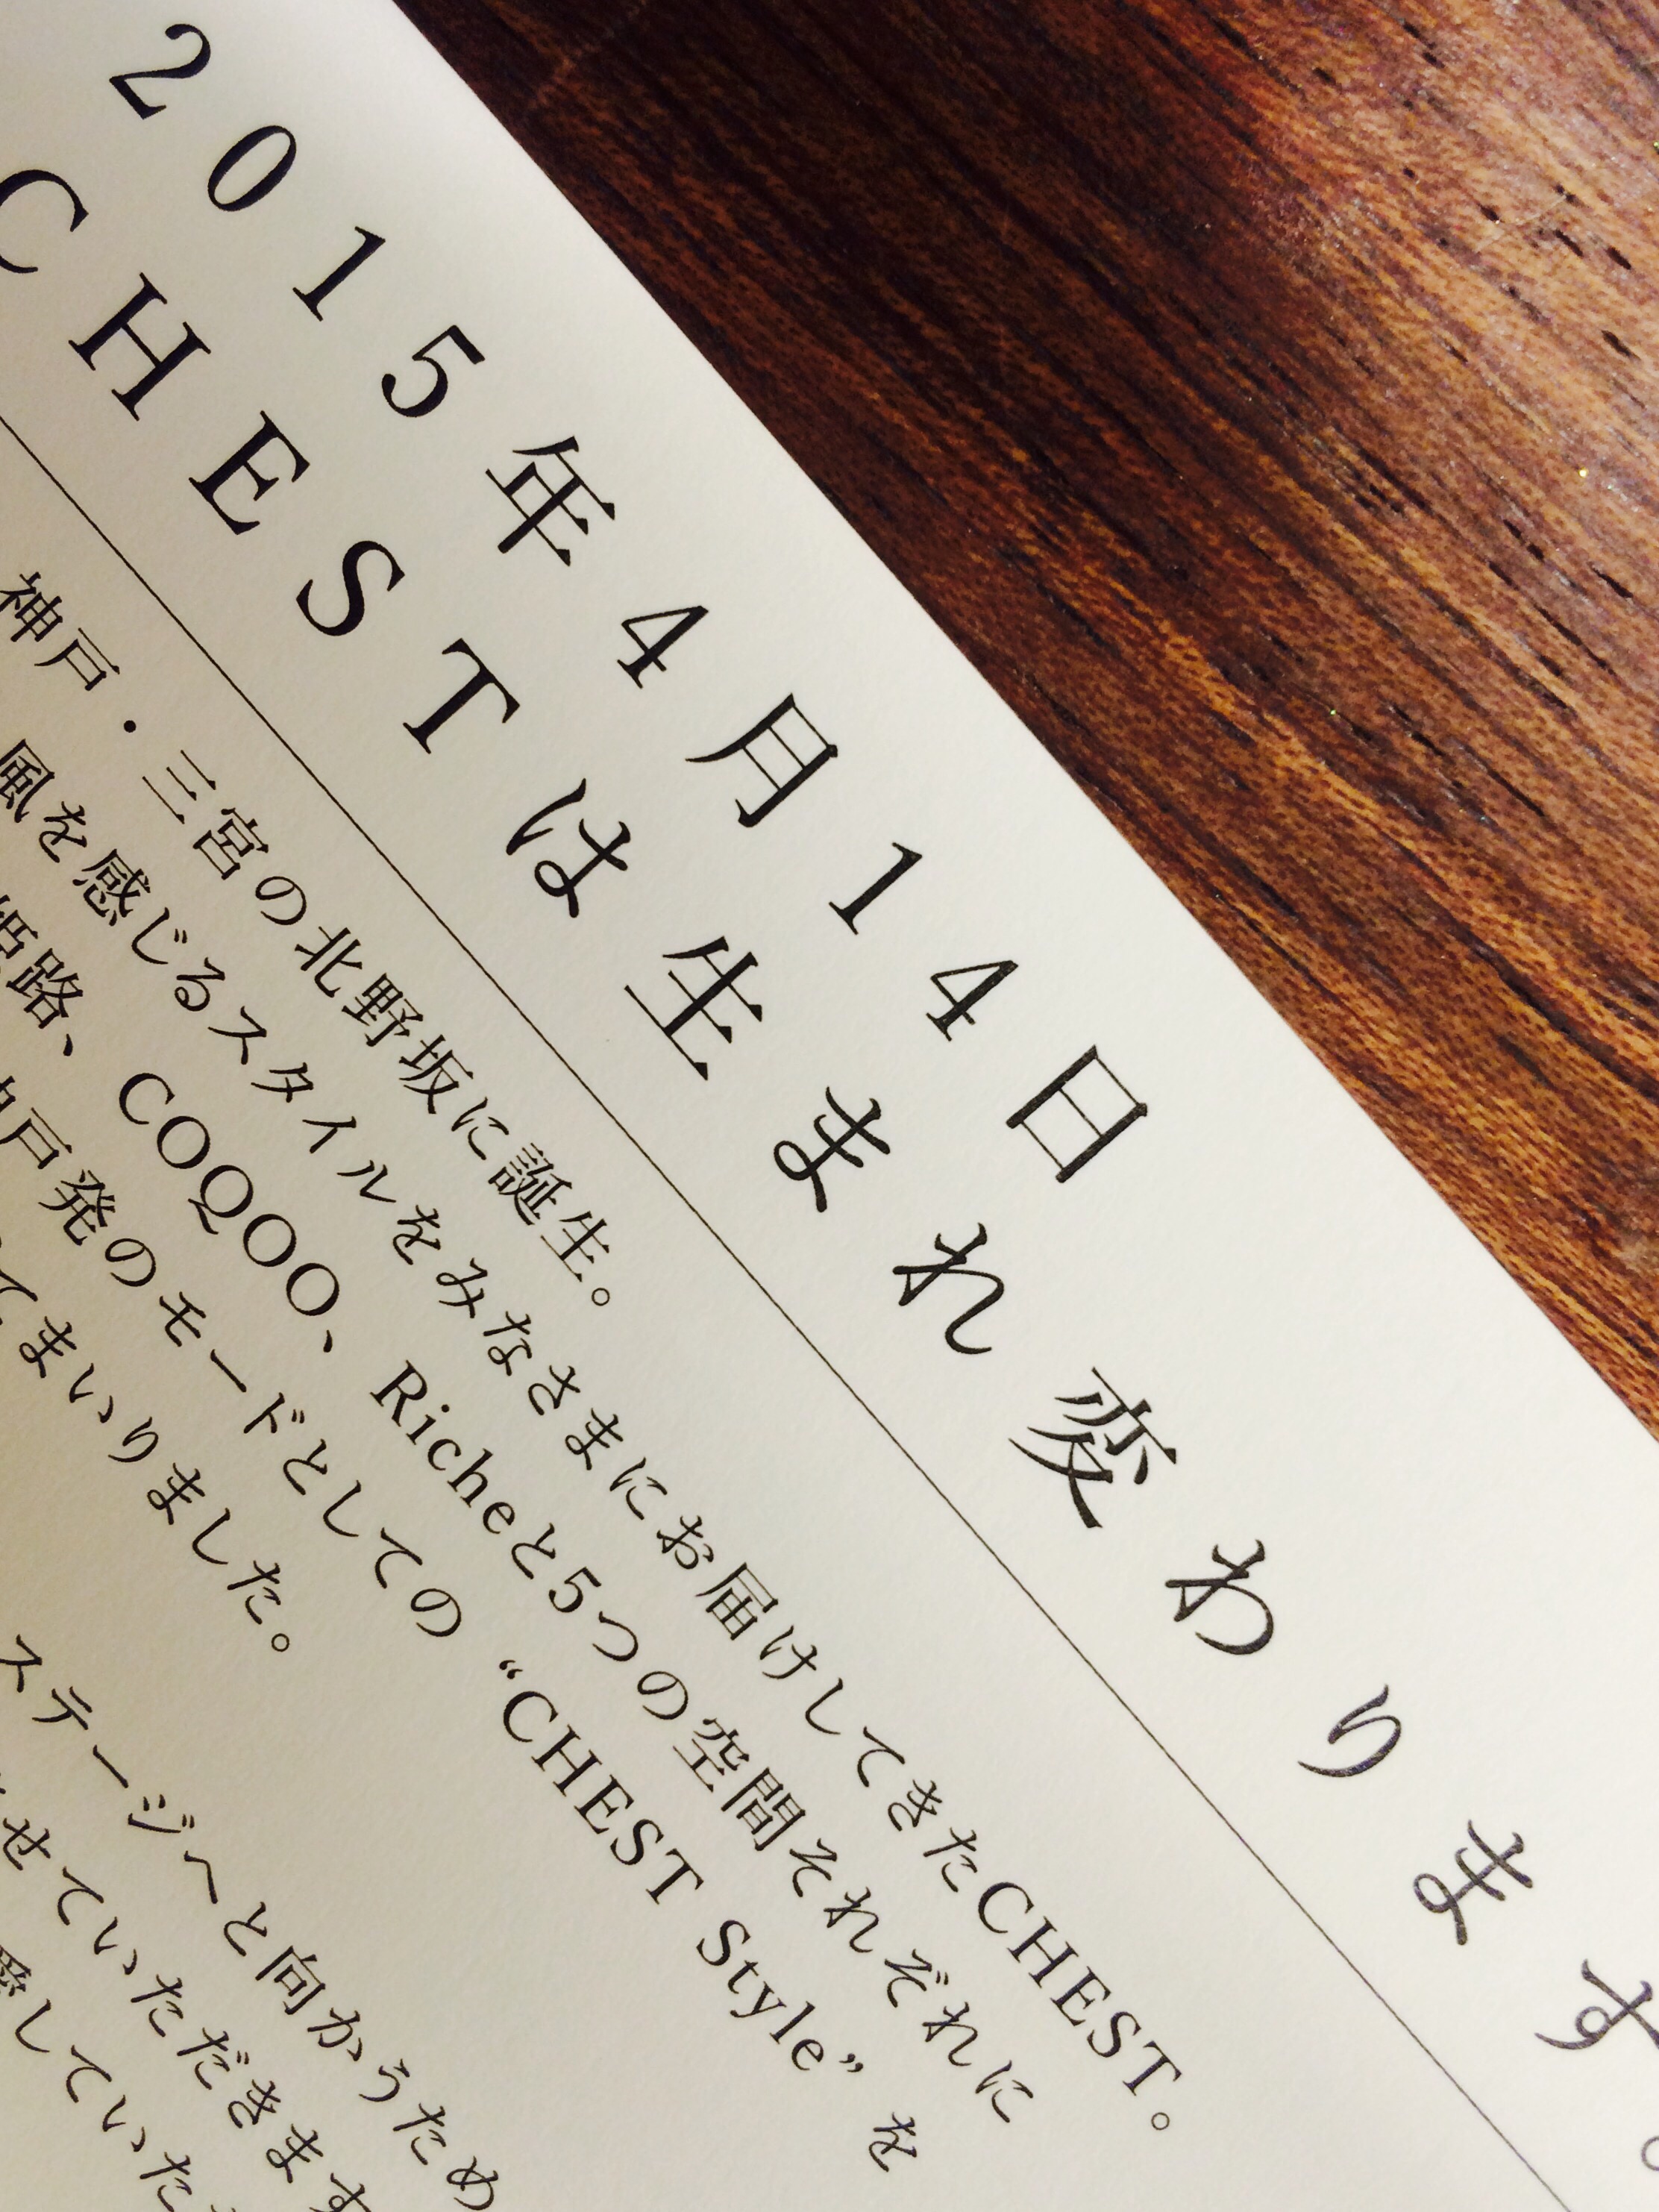 2015年4月14日
CHESTは生まれ変わります。
神戸・三宮の北野坂に誕生。
風を感じるスタイルをみなさまにお届けしてきたCHEST。
姫路、COQOO、Richeと5つの空間それぞれに
神戸発のモードとしての “CHEST Style” を
てまいりました。
ステージへと向かうため
せていただきます
愛していた